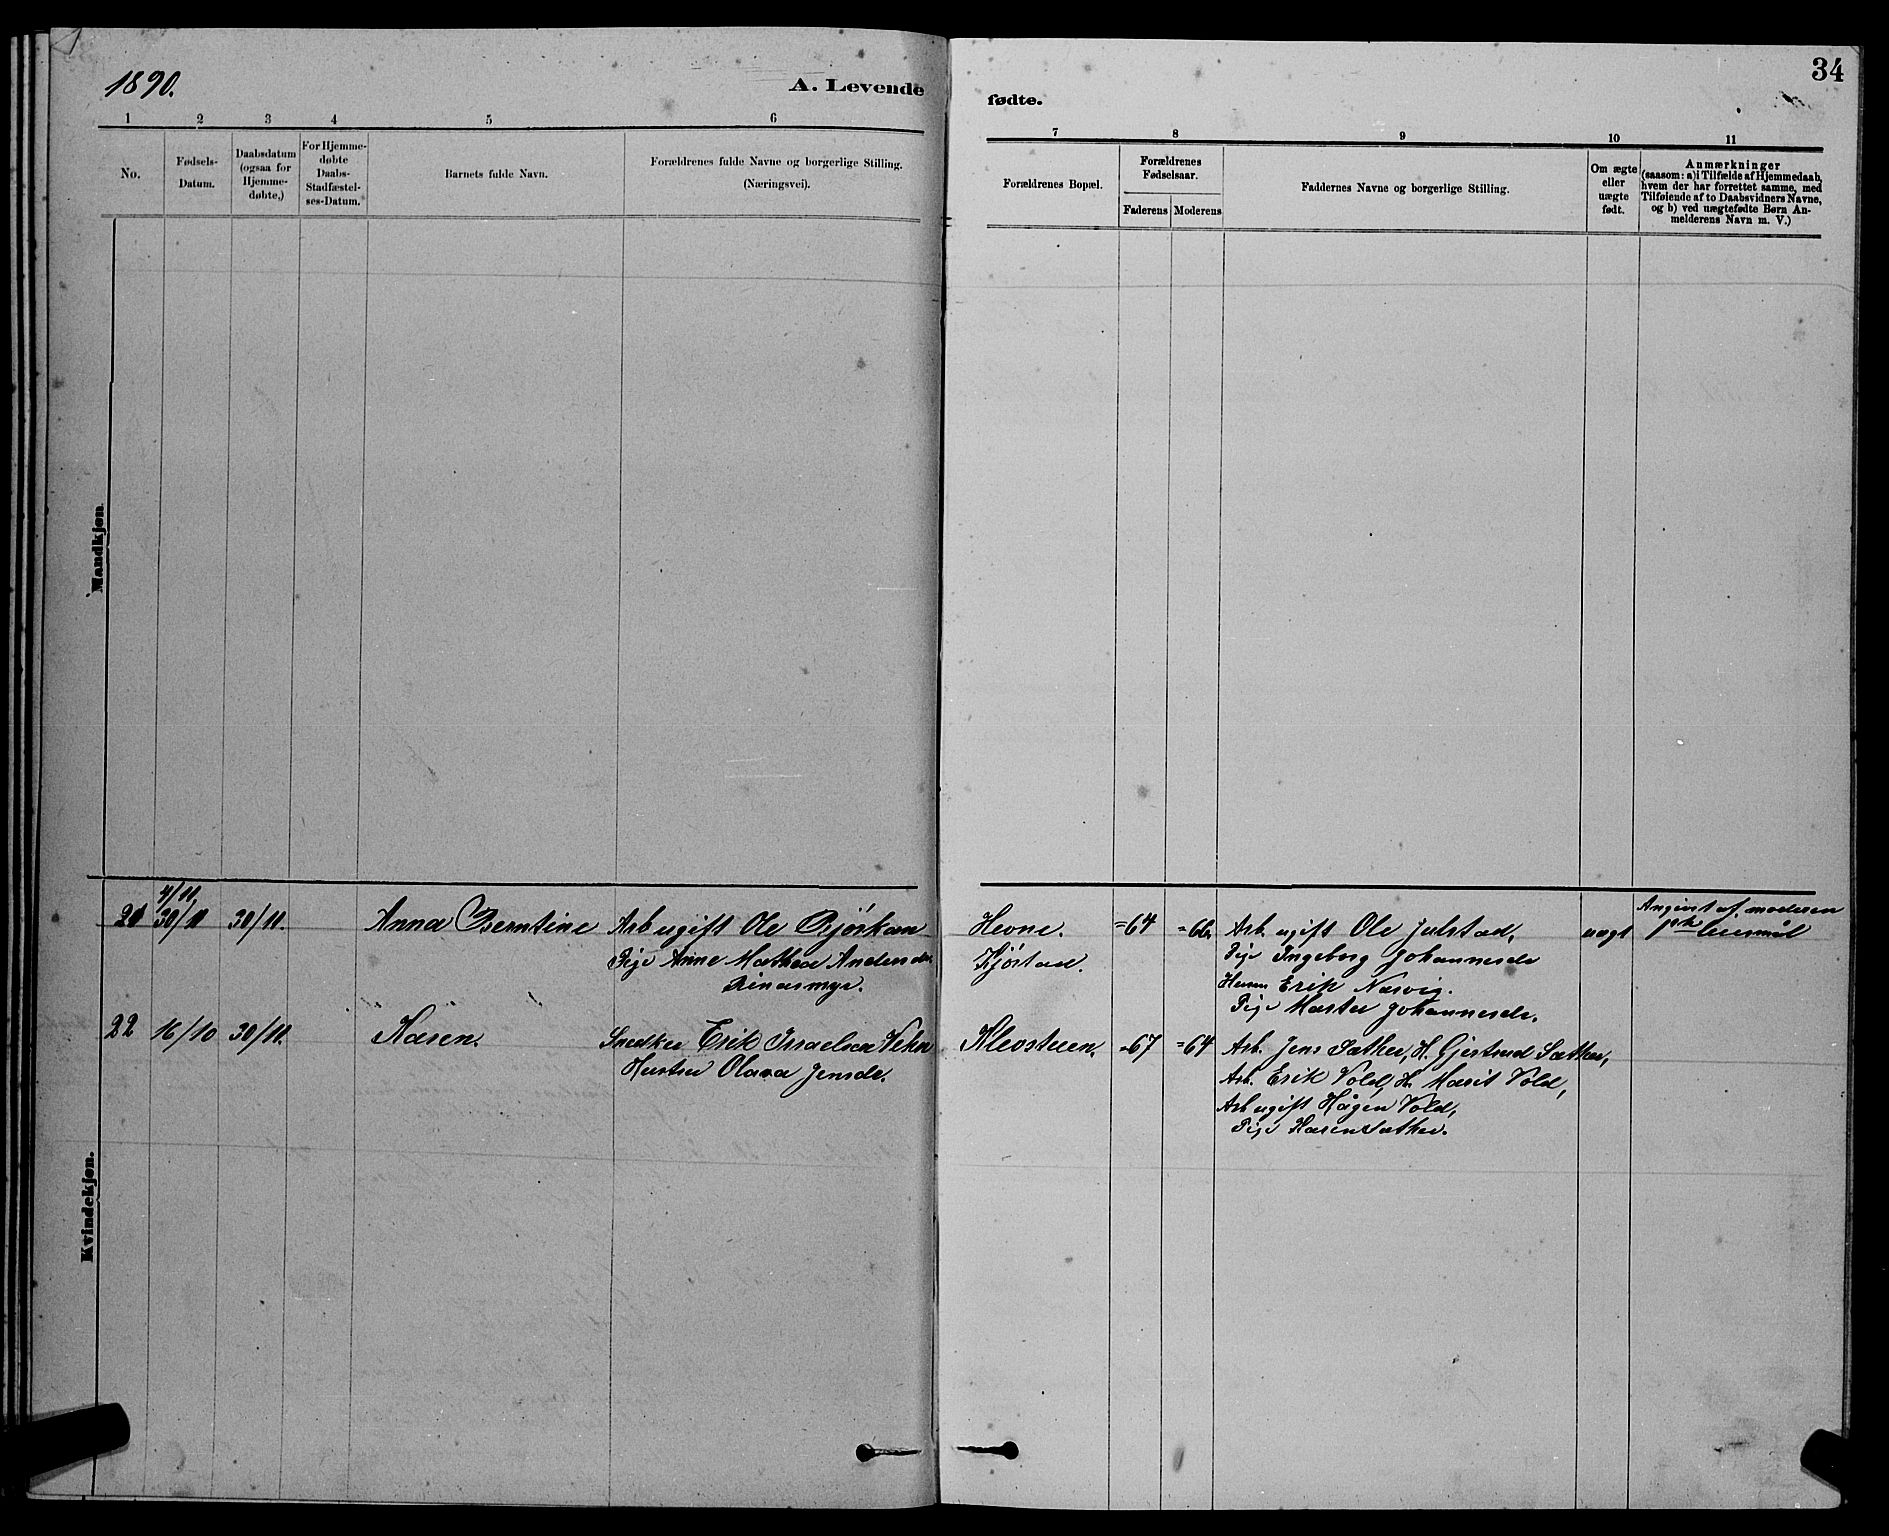 1890.
A. Levende
fødte.
34
1 2 3 4 5 6 7 8 9 10 11
No.
Fødsels-
Datum.
Daabsdatum
(ogsaa for
Hjemme-
døbte,)
For Hjemme-
døbte
Daabs-
Stadfæstel-
ses-Datum.
Barnets fulde Navn.
Forældrenes fulde Navne og borgerlige Stilling.
(Næringsvei).
Forældrenes Bopæl.
Forældrenes
Fødselsaar.
Faderens Moderens
Faddernes Navne og borgerlige Stilling.
Om ægte
eller
uægte
født.
Anmærkninger
(saasom: a) i Tilfælde af Hjemmedaab,
hvem der har forrettet samme, med
Tilføiende af to Daabsvidners Navne,
og b) ved uægtefødte Børn An-
melderens Navn m. V.)
Mandkjøn.
Kvindekjøn.
4/11.
21 30/11 30/11. Anna Berntine Arb ugift Ole Bjørkan Hevne. =64 =66. Arb. ugift Ole Julstad, uægt Angivet af moderen
Pige Anne Mathea Andersdr. Kjøstad. Pige Ingeborg Johannesdr
Husm Erik Næsvig.
Pige Marter Johannesdr.
22 16/10 30/11. Karen. Snedker Erik Israelsen Klevsteen. =67 =64 Arb. Jens Sæther, H. Gjertrud Sæther,
Hustru Olava Jensdr. Arb. Erik Vold, H. Marit Vold,
Arb ugift Hågen Vold,
Pige Karen Sæther.